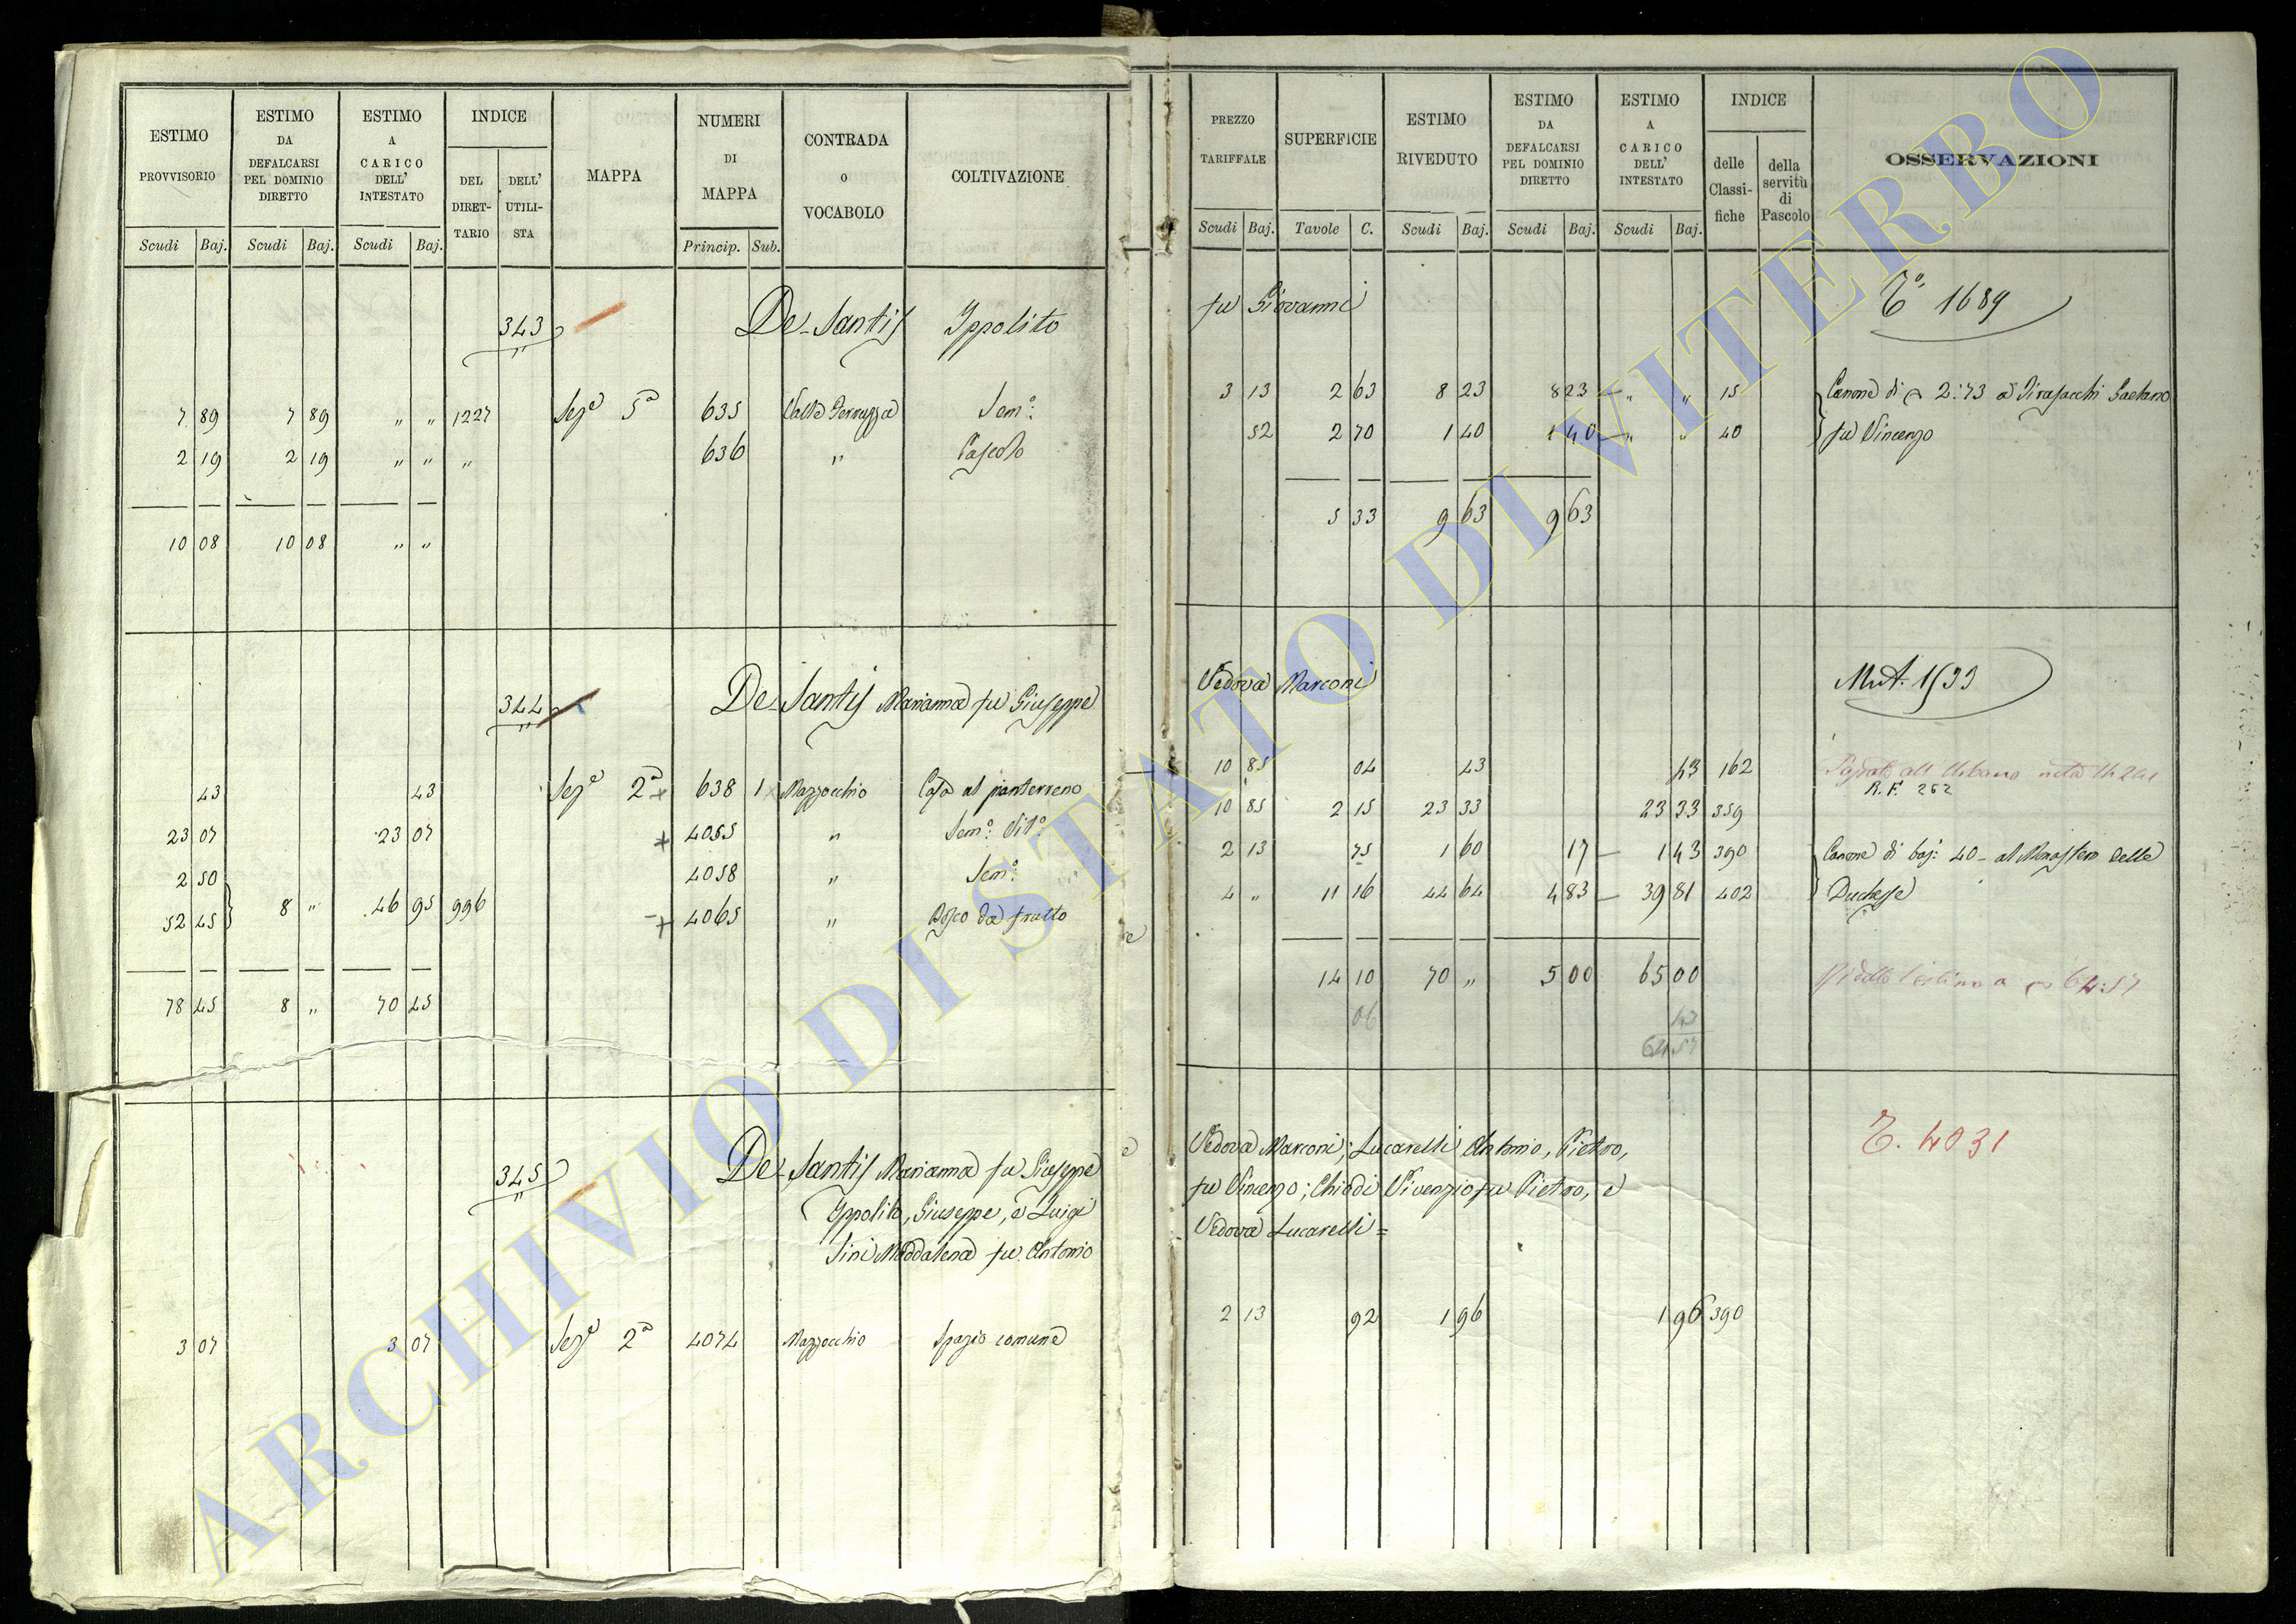 ESTIMO PROVVISORIO
ESTIMO DA DEFALCARSI PEL DOMINIO DIRETTO
ESTIMO A CARICO DELL' INTESTATO
INDICE
DEL DIRET-TARIO
DELL' UTILI-STA
MAPPA
NUMERI DI MAPPA
CONTRADA o VOCABOLO
COLTIVAZIONE
Scudi Baj. Scudi Baj. Scudi Baj. Princip. Sub.
PREZZO TARIFFALE
SUPERFICIE
ESTIMO RIVEDUTO
ESTIMO DA DEFALCARSI PEL DOMINIO DIRETTO
ESTIMO A CARICO DELL' INTESTATO
INDICE
delle Classi-fiche
della servitù di Pascolo
OSSERVAZIONI
Scudi Baj. Tavole C. Scudi Baj. Scudi Baj. Scudi Baj.
343 De-Santis Ippolito fu Giovanni 1689
7 89 7 89 " " 1227 Sez.e 5a 635 Sem.o 3 13 2 63 8 23 8 23 — " " 15 Canone di 2:73 a Tirasacchi Gaetano
2 19 2 19 " " " 636 " Pascolo 52 2 70 1 40 1 40 — " " 40 fu Vincenzo
10 08 10 08 " " 5 33 9 63 9 63
344 De-Santis Marianna fu Giuseppe Vedova Marconi Mut. 1533
43 43 Sez.e 2a 638 1 Mazzocchio Casa al pianterreno 10 85 04 43 43 162
R.F. 262
23 07 23 07 4055 " Sem.o Vit.o 10 85 2 15 23 33 23 33 359
2 50 4058 " Sem.o 2 13 75 1 60 17 — 1 43 390 Canone di baj: 40 - al Monastero delle
52 45 8 " 46 95 996 4065 " Bosco da frutto 4 " 11 16 44 64 4 83 — 39 81 402 Duchesse
78 45 8 " 70 45 14 10 70 " 5 00 65 00 Ridotto l'estimo a 64:57
06 43
64 57
345 De-Santis Marianna fu Giuseppe Vedova Marconi; Lucarelli Antonio, Pietro, 4031
Ippolito, Giuseppe, e Luigi fu Vincenzo; Chiodi Vivenzio fu Pietro, e
Sini Maddalena fu Antonio Vedova Lucarelli =
3 07 3 07 Sez.e 2a 4074 Mazzocchio Spazio comune 2 13 92 1 96 1 96 390
ARCHIVIO DI STATO DI VITERBO